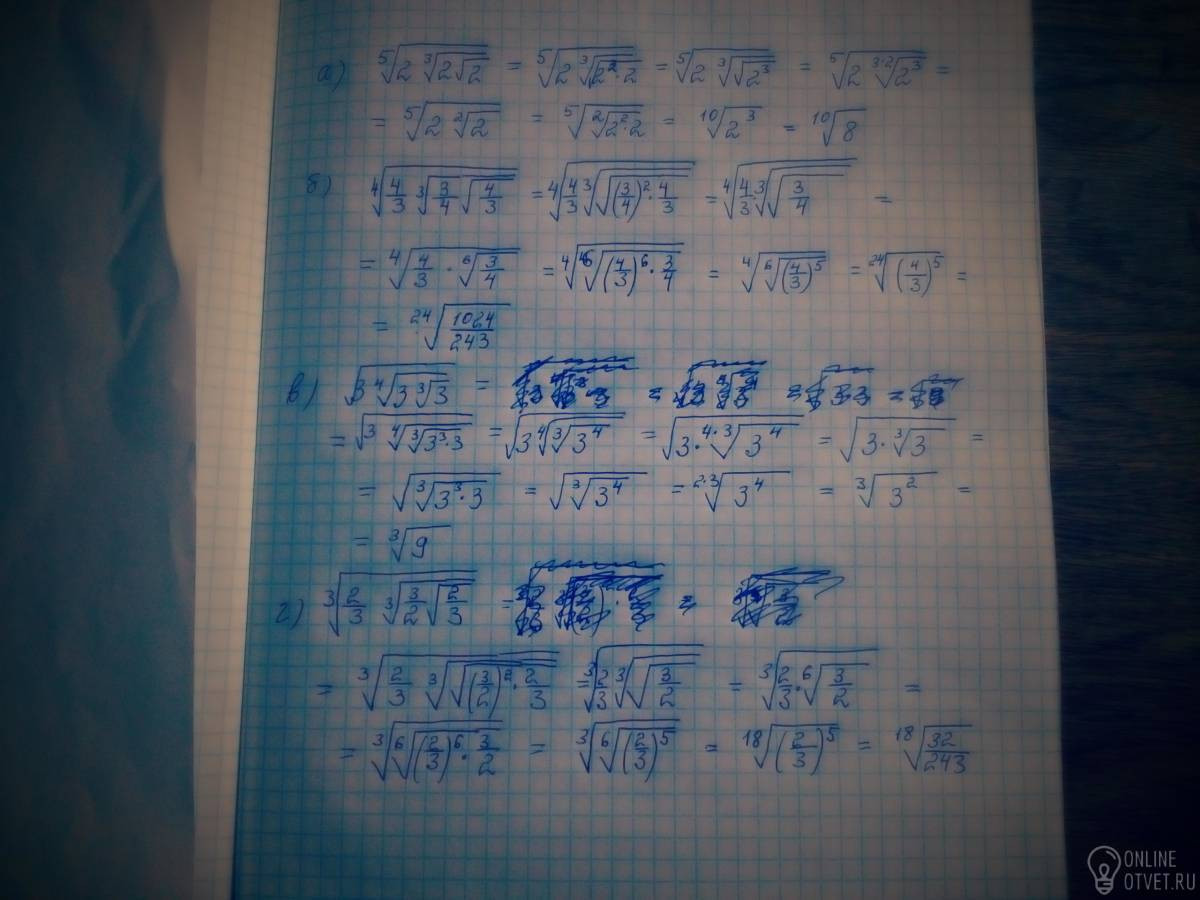 а) ⁵√(2 ³√(2√2)) = ⁵√(2 ³√(√(2²·2))) = ⁵√(2 ³√(√(2³))) = ⁵√(2 ³·²√(2³)) =
= ⁵√(2 ²√2) = ⁵√(²√(2²·2)) = ¹⁰√(2³) = ¹⁰√8
б) ⁴√(4/3 ³√(3/4 √(4/3))) = ⁴√(4/3 ³√(√((3/4)²·4/3))) = ⁴√(4/3 ³√(√(3/4))) =
= ⁴√(4/3 · ⁶√(3/4)) = ⁴√(⁶√((4/3)⁶·3/4)) = ⁴√(⁶√((4/3)⁵)) = ²⁴√((4/3)⁵) =
= ²⁴√(1024/243)
в) √(3 ⁴√(3 ³√3)) =
= √(3 ⁴√(³√(3³·3))) = √(3 ⁴√(³√(3⁴))) = √(3 · ⁴·³√(3⁴)) = √(3·³√3) =
= √(³√(3³·3)) = √(³√(3⁴)) = ²·³√(3⁴) = ³√(3²) =
= ³√9
г) ³√(2/3 ³√(3/2 √(2/3))) =
= ³√(2/3 ³√(√((3/2)²·2/3))) = ³√(2/3 ³√(√(3/2))) = ³√(2/3·⁶√(3/2)) =
= ³√(⁶√((2/3)⁶·3/2)) = ³√(⁶√((2/3)⁵)) = ¹⁸√((2/3)⁵) = ¹⁸√(32/243)
ONLINE
OTVET.RU